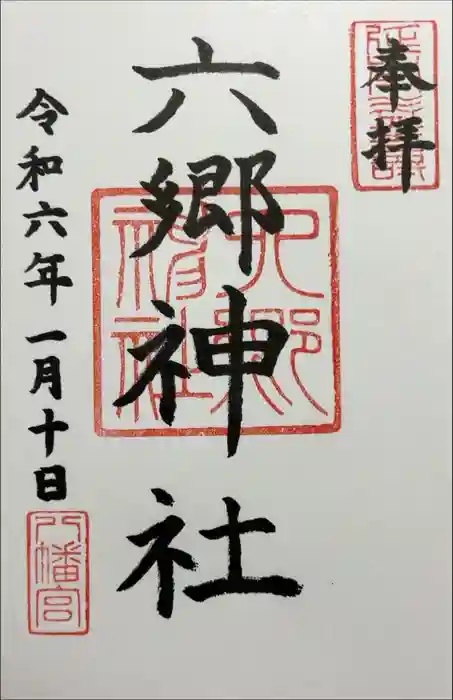 奉拝
六郷神社
六郷
神社
令和六年一月十日
八幡宮